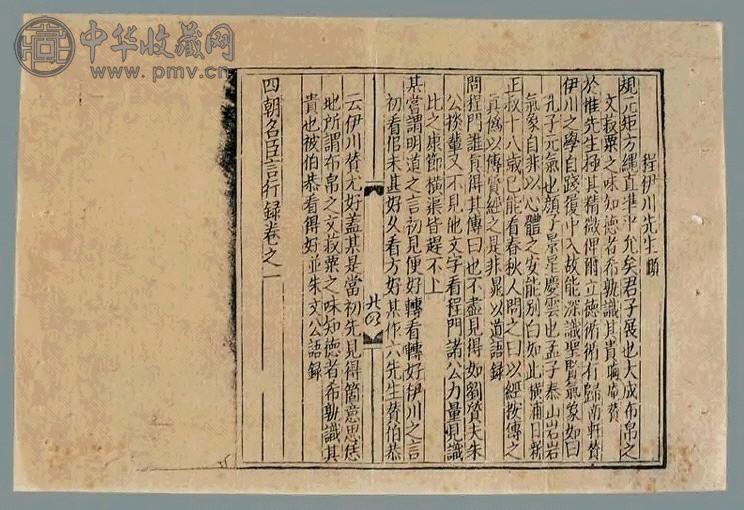 中华收藏网
www.pmv.cn
程伊川先生頤
規元矩方繩直準平允矣君子展也大成布帛之
文菽粟之味知德者希孰識其貴晦庵賛
於惟先生極其精微俾爾立德循循有歸南軒賛
伊川之學自踐履中入故能深識聖賢氣象如曰
孔子元氣也顔子景星慶雲也孟子泰山岩岩
氣象自非以心體之安能別白如此橫浦日新
正叔十八歲已能看春秋人問之曰以經按傳之
真偽以傳質經之是非異以道語録
問程門誰真得其傳曰也不盡見得如劉質夫朱
公掞輩又不見他文字看程門諸公力量見識
比之康節橫渠皆趕不上
某嘗謂明道之言初見便好轉看轉好伊川之言
初看似未甚好久看方好某作六先生賛伯恭
云伊川賛尤好蓋某是當初先見得箇意思恁
地所謂布帛之文菽粟之味知德者希孰識其
貴也被伯恭看得好並朱文公語録
四朝名臣言行録卷之二